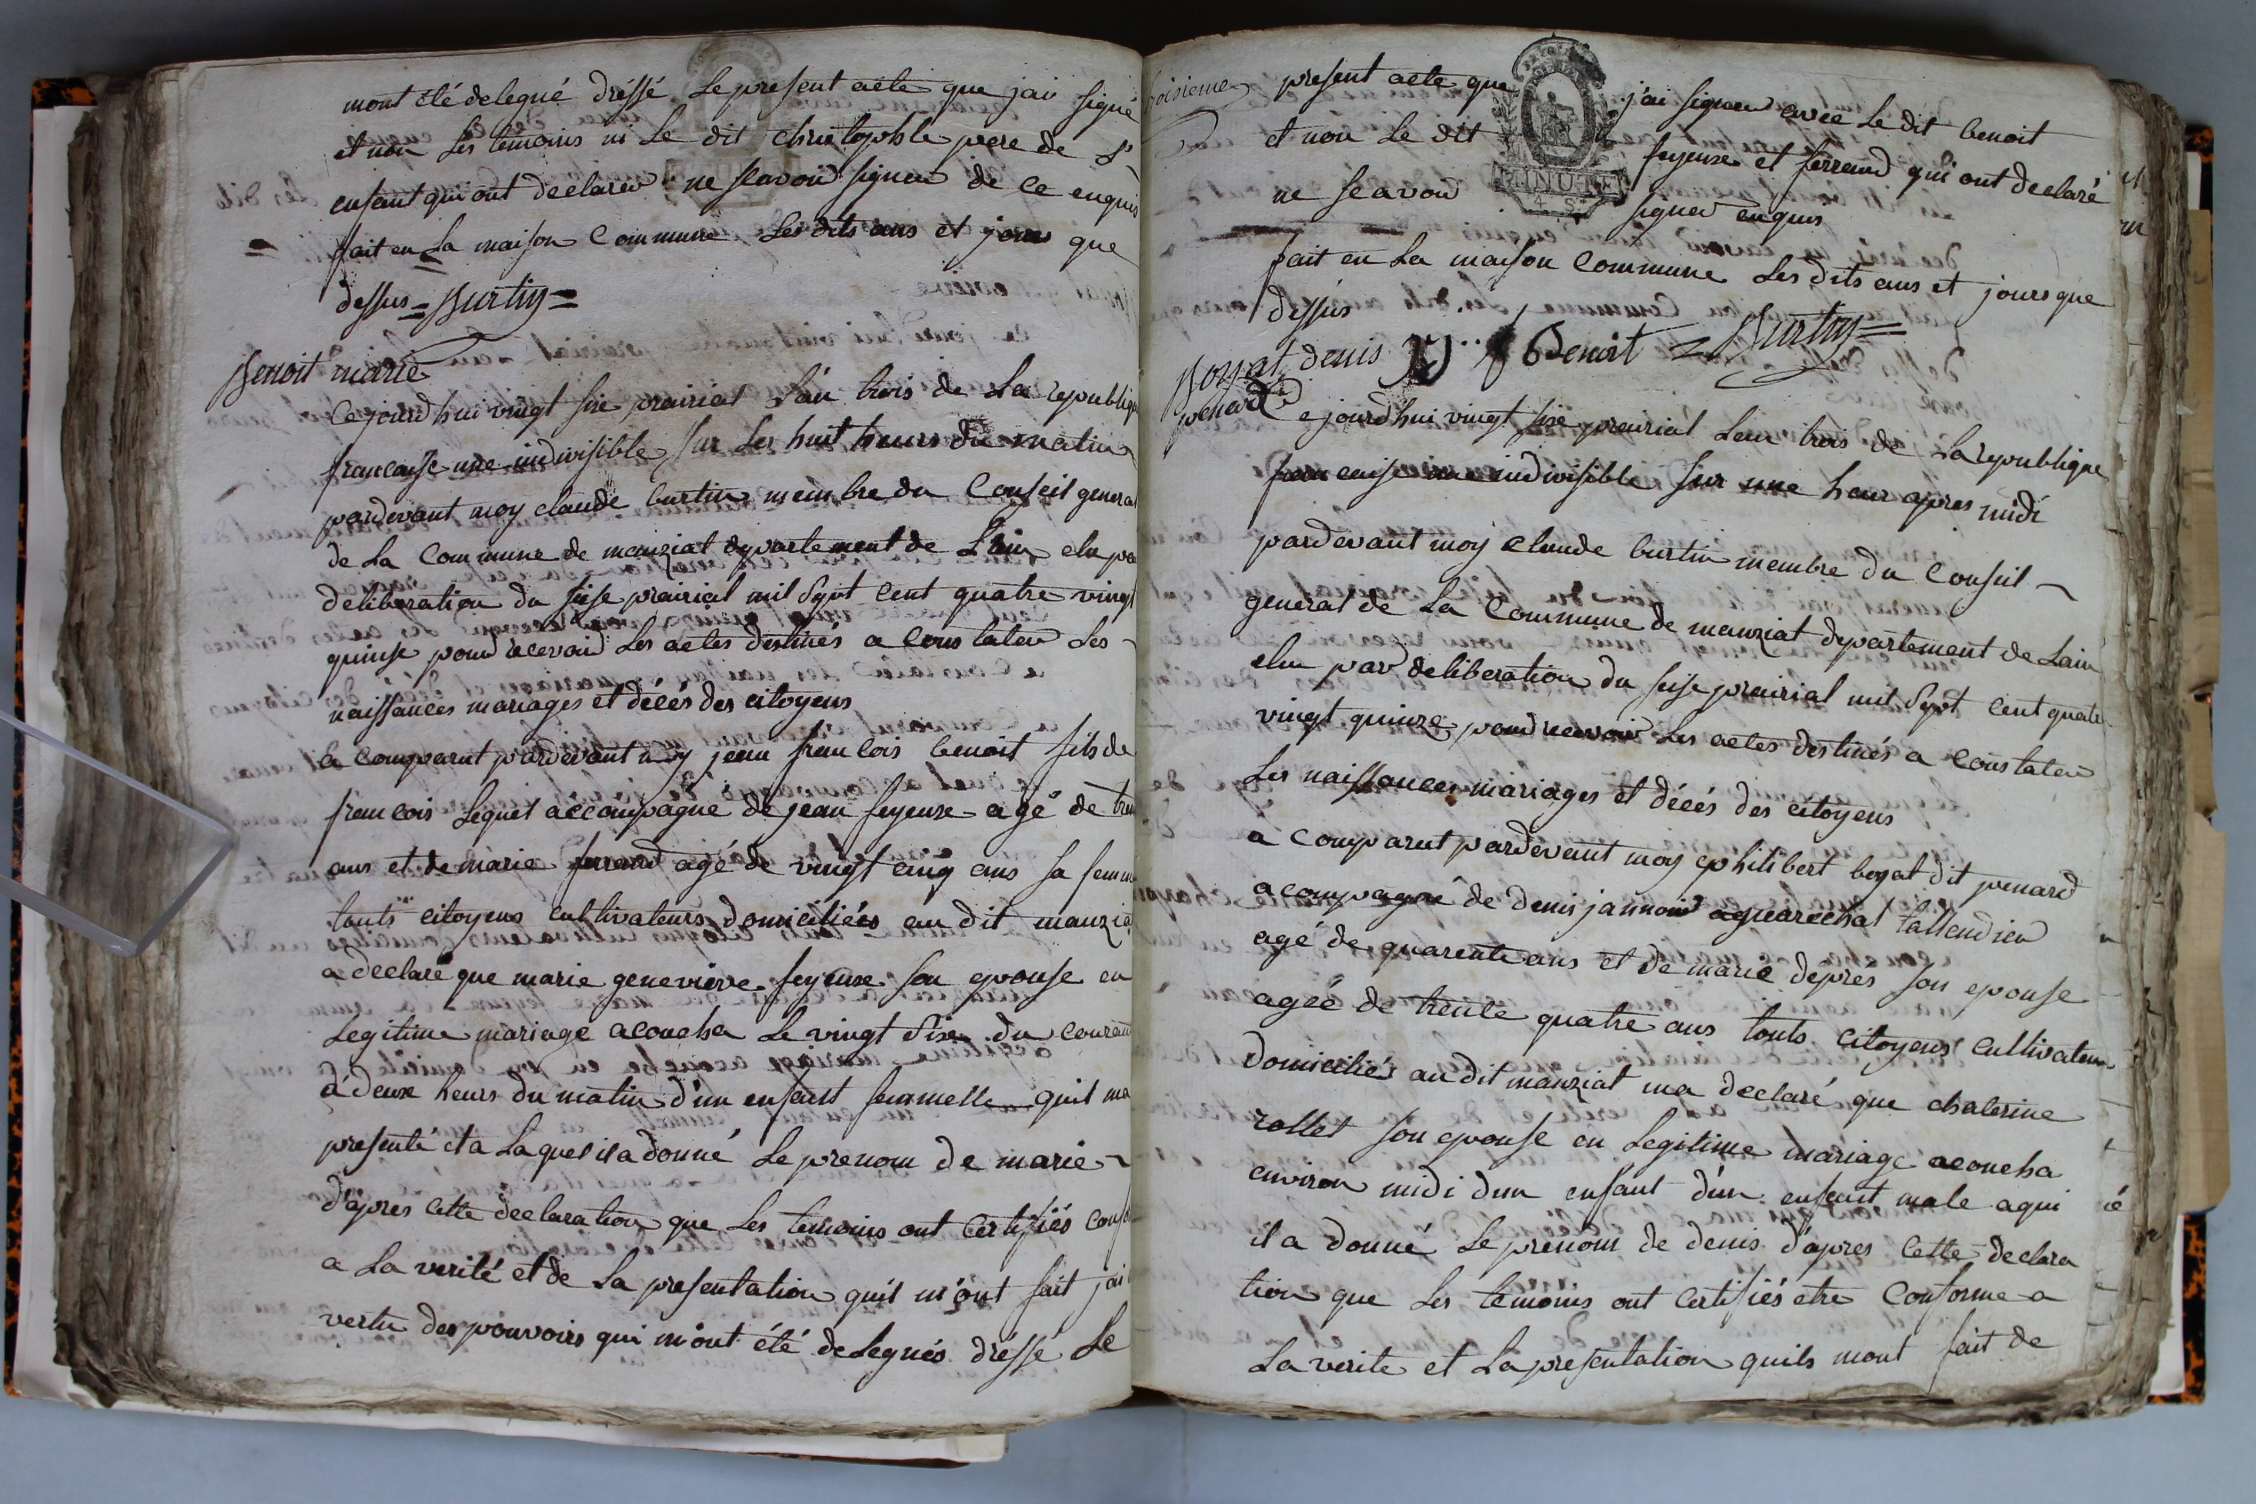 mont été delegué dréssé Le present acte que jai signé
et non Les temoins ni Le dit christophle pere de L'
enfant qui ont declarer ne scavoir signer de ce enquis
fait en La maison Commune Les dits ans et jours que
dessus = Burtin =
Benoit marie
Cejourdhui vingt six prairial L'an trois de La republique
francaise une indivisible sur Les huit heures du matin
pardevant moy claude burtin membre du Conseil general
de La Commune de manziat departement de L'ain elu par
deliberation du seise prairial mil sept cent quatre vingt
quinse pour recevoir Les actes destinés a constater Les
naissances mariages et décés des citoyens
a comparut pardevant moy jean francois benoit fils de
francois Lequel accompagné de jean feyeuse agé de
ans et de marie ferrand agé de vingt cinq ans sa femme
touts citoyens cultivateurs domiciliées au dit manziat
a declaré que marie genevieve feyeuse son epouse en
Legitime mariage acoucha Le vingt sixe du courant
a deux heurs du matin d'un enfant femmelle quil ma
presenté et a Laquel il a donné Le prenom de marie
d'apres cette declaration que Les temoins ont certifiés
a La verité et de La presentation quil m'ont fait jai
vertu des pouvoirs qui m'ont été delegués dréssé Le
present acte que j'ai signer avec Le dit benoit
et non Le dit feyeuse et ferrand qui ont declaré
ne scavoir signer enquis
MINUTE
4 S.
fait en La maison Commune Les dits ans et jours que
dessus
Benoit Burtin =
Boyat denis
penard
Cejourdhui vingt sixe prairial Lan trois de La republique
francaise une indivisible sur une heur apres midi
pardevant moy claude burtin membre du Conseil
general de La Commune de manziat departement de Lain
elu par deliberation du seise prairial mil sept cent quatre
vingt quinze pour recevoir Les actes destinés a constater
Les naissances mariages et décés des citoyens
a comparut pardevant moy philibert boyat dit penard
acompagné de denis jannoir marechal tallendier
agé de quarente ans et de marie deprés son epouse
ageé de trente quatre ans touts citoyens cultivateurs
domiciliés au dit manziat ma declaré que chaterine
rollet son epouse en Legitime mariage acoucha
environ midi dun enfant d'un enfant male a qui
il a donné Le prenom de denis d'apres cette declara
tion que Les temoins ont certifiés etre Conforme a
La verite et La presentation quils mont fait de